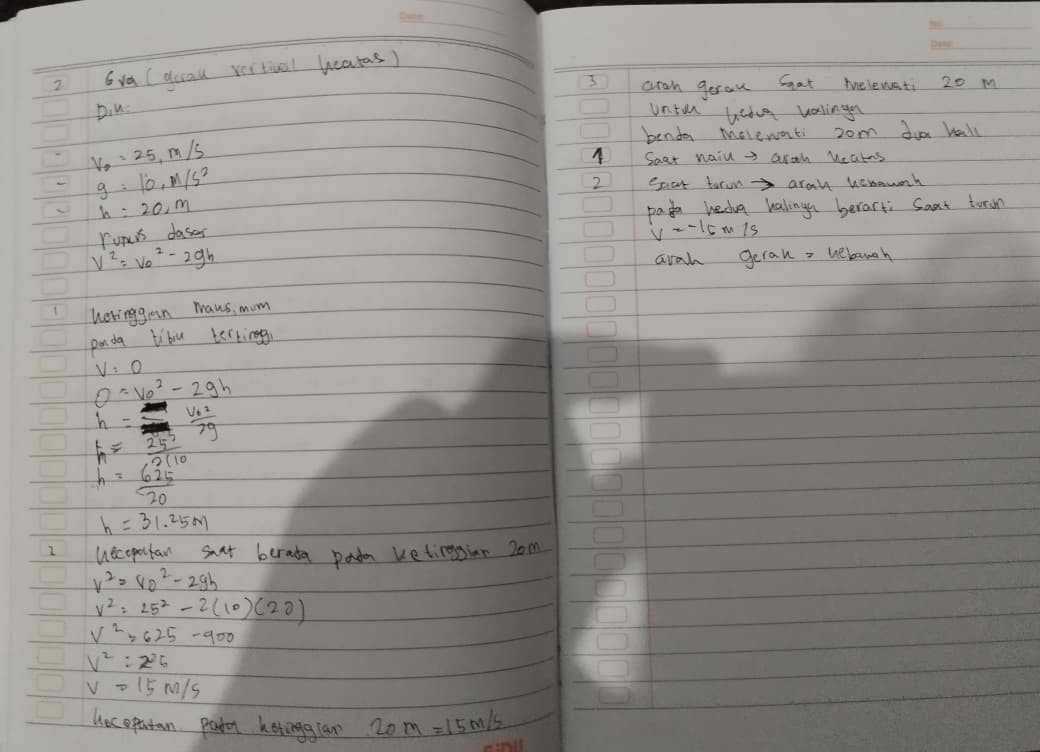 Date:
2 Gva (gerak vertikal keatas)
Dik:
- V₀ = 25, m/s
- g = 10, m/s²
- h = 20, m
rumus dasar
V² = V₀² - 2gh
1 Ketinggian maksimum
pada titik tertinggi
V = 0
0 = V₀² - 2gh
h = V₀²/2g
h = 25²/2(10
h = 625/20
h = 31.25m
2 Kecepatan saat berada pada ketinggian 20m
V² = V₀² - 2gh
V² = 25² - 2(10)(20)
V² = 625 - 400
V² =
V = 15 m/s
Kecepatan pada ketinggian 20m = 15 m/s
SiDU
No.
Date:
3 arah gerak saat melewati 20 m
untuk kedua kalinya
benda melewati 20m dua kali
1 Saat naik → arah keatas
2 Saat turun → arah kebawah
pada kedua kalinya berarti saat turun
V = -15 m/s
arah gerak = kebawah